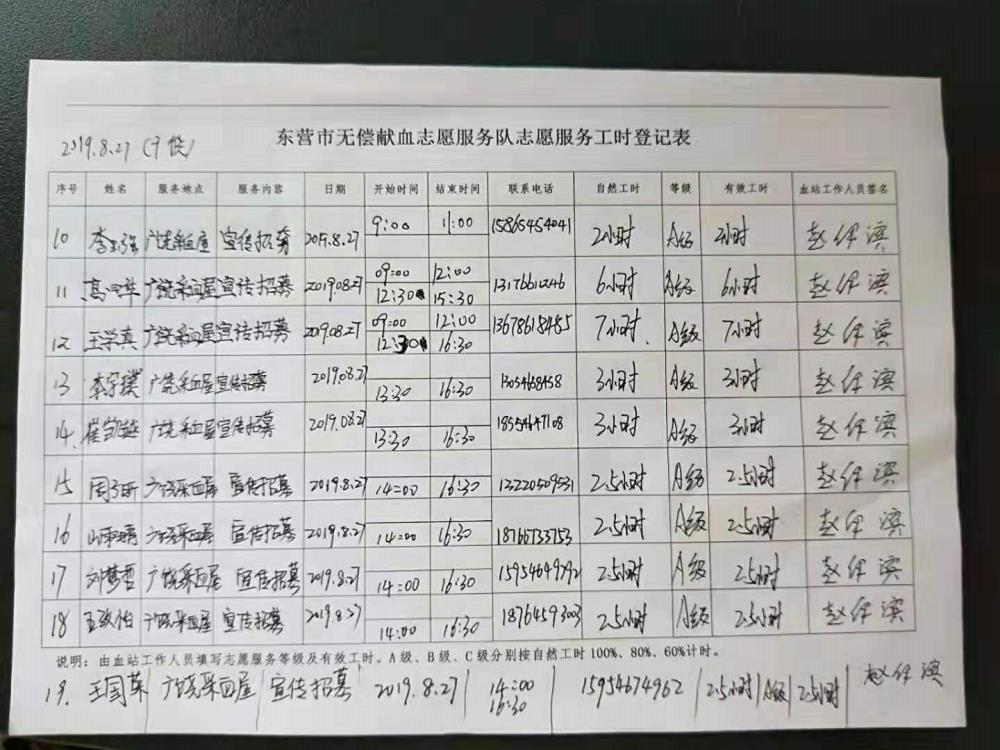 2019.8.27
东营市无偿献血志愿服务队志愿服务工时登记表
序号 姓名 服务地点 服务内容 日期 开始时间 结束时间 联系电话 自然工时 等级 有效工时 血站工作人员签名
10 广饶采血屋 宣传招募 2019.8.27 9:00 11:00 15865454041 2小时 A级 2小时
11 广饶采血屋 宣传招募 2019.08.27 09:00 12:00 6小时 A级 6小时
12:30 15:30
12 王学真 广饶采血屋 宣传招募 2019.08.27 09:00 12:00 13678618485 7小时 A级 7小时
12:30 16:30
13 广饶采血屋 宣传招募 2019.08.27 13:30 16:30 3小时 A级 3小时
14 广饶采血屋 宣传招募 2019.08.27 13:30 16:30 18554647108 3小时 A级 3小时
15 广饶采血屋 宣传招募 2019.8.27 14:00 16:30 2.5小时 A级 2.5小时
16 广饶采血屋 宣传招募 2019.8.27 14:00 16:30 18766733753 2.5小时 A级 2.5小时
17 刘梦哲 广饶采血屋 宣传招募 2019.8.27 14:00 16:30 15954649792 2.5小时 A级 2.5小时
18 广饶采血屋 宣传招募 2019.8.27 14:00 16:30 18764593003 2.5小时 A级 2.5小时
说明：由血站工作人员填写志愿服务等级及有效工时。A级、B级、C级分别按自然工时100%、80%、60%计时。
19. 王国英 广饶采血屋 宣传招募 2019.8.27 14:00 15954674962 2.5小时 A级 2.5小时
16:30